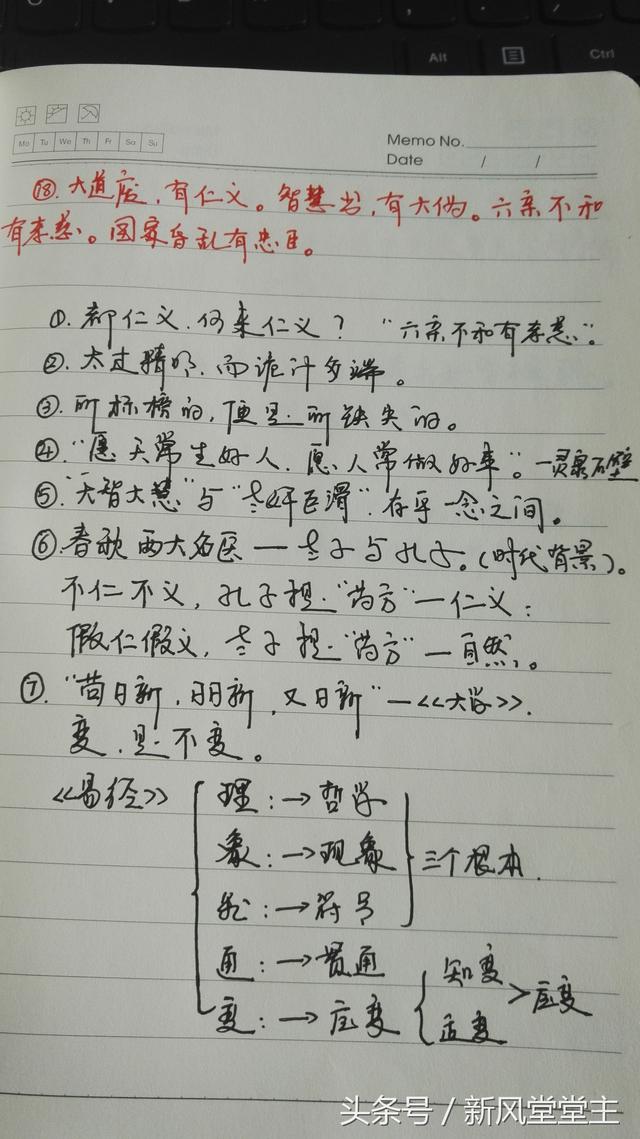 Alt
Ctrl
Mo Tu We Th Fr Sa Su
Memo No.
Date / /
⑱. 大道废,有仁义。智慧出,有大伪。六亲不和
有孝慈。国家昏乱有忠臣。
①. 都仁义.何来仁义?“六亲不和有孝慈”。
②. 太过精明.而诡计多端。
③. 所标榜的,便是所缺失的。
④. “愿天常生好人.愿人常做好事”。—灵泉石壁
⑤. “大智大慧”与“老奸巨滑”.存乎一念之间。
⑥. 春秋两大名医—老子与孔子。(时代背景)。
不仁不义,孔子提“药方”—仁义:
假仁假义,老子提“药方”—自然。
⑦. “苟日新,日日新,又日新”—<<大学>>.
变.是不变。
<<易经>>
理:→哲学
象:→现象
数:→符号
三个根本.
通:→贯通
变:→应变
知变
适变
>应变
头条号 / 新风堂堂主